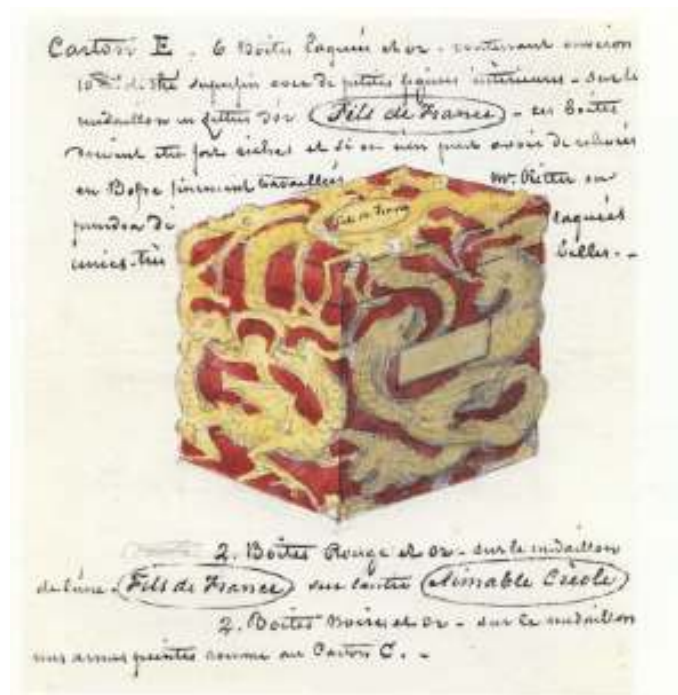 Carton E. 6 Boites laquées et or - contenant environ
de thé superfin avec de petites figures intérieures - sur le
médaillon en lettres d'or Fils de France - ces boites
doivent être fort riches et si on n'en peut avoir de
en Bosse finement travaillées Mr. en
prendra de laquées
unies très belles. -
Fils de France
2. Boites Rouge et or - sur le médaillon
de l'une - Fils de France sur l'autre Aimable Créole
2. Boites noires et or - sur le médaillon
armes peintes comme au Carton C. -